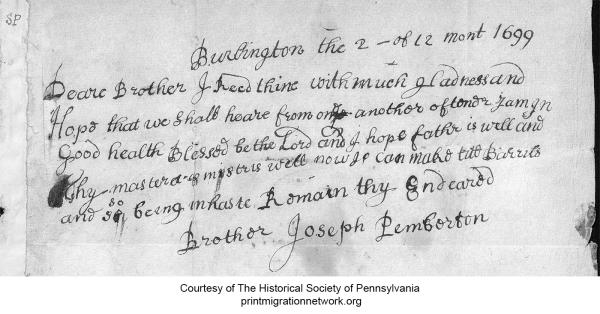 SP
Burlington the 2 - of 12 mont 1699
Deare Brother J Reed thine with much gladness and
Hope that we shall heare from one another oftener J am yn
Good health Blessed be the Lord and J hope father is well and
Thy master & mystris well now J can make
and so being in haste Remain thy Endeared
Brother Joseph Pemberton
Courtesy of The Historical Society of Pennsylvania
printmigrationnetwork.org